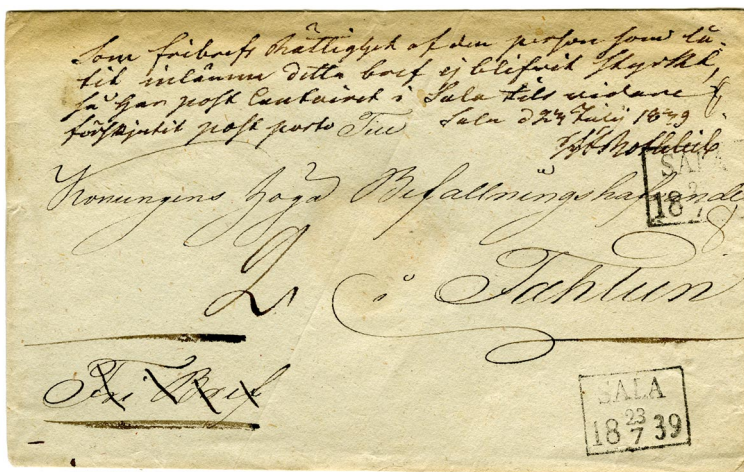 Som fribrefs rättighet af den person som lå-
tit inlämna detta bref ej blifvit styrkt,
så har post Contoiret i Sala tils vidare
förskjutit post porto Sala d 23 Julii 1839
SALA
18
Konungens höga Befallningshafvande
2
i Fahlun
Fri Bref
SALA
18 23/7 39